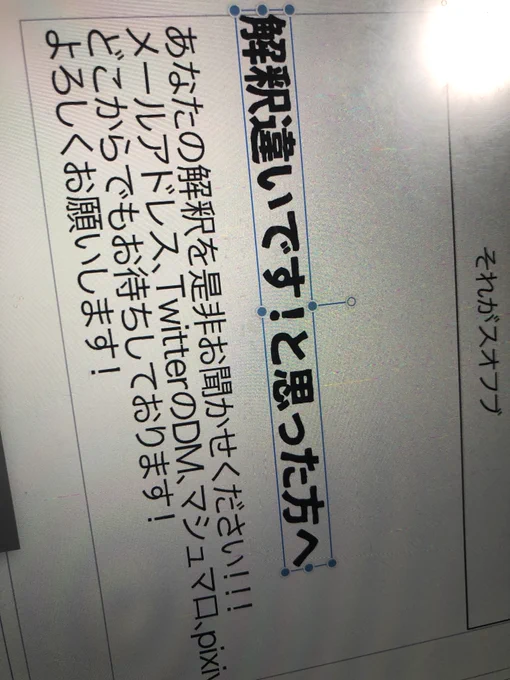 それがスオフブ
解釈違いです！と思った方へ
あなたの解釈を是非お聞かせください！！！
メールアドレス、TwitterのDM、マシュマロ、pixiv
どこからでもお待ちしております！
よろしくお願いします！